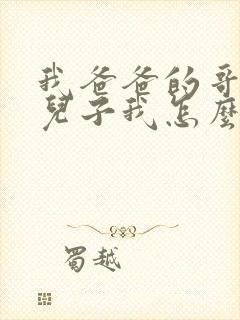 我爸爸的哥
兒子我怎麼
蜀越